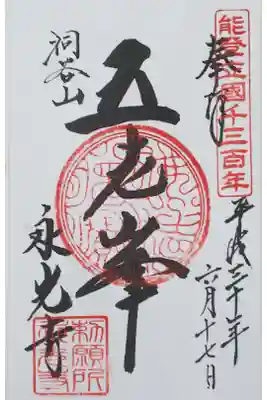 能登立國千三百年
奉拝
平成三十年
六月十七日
五老峯
洞谷山
永光寺
勅願所